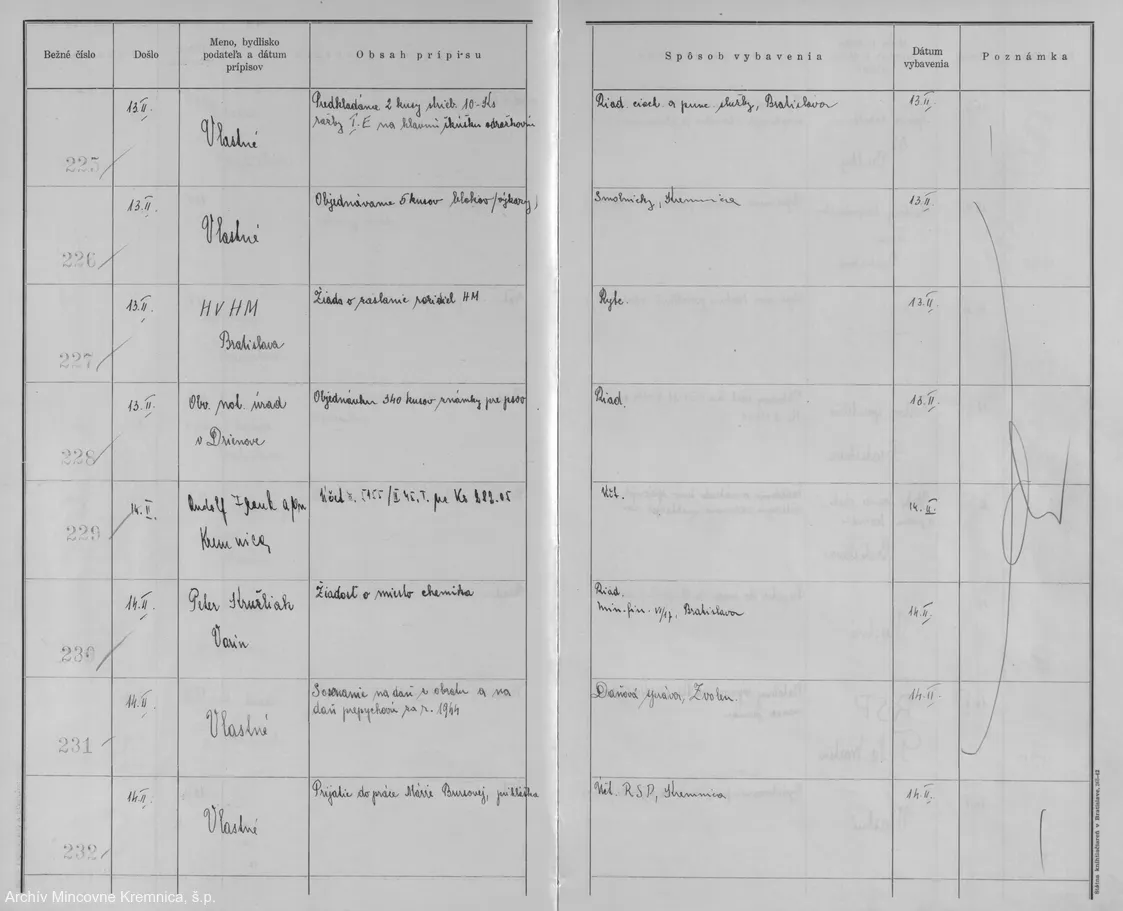 Bežné číslo
Došlo
Meno, bydlisko
podateľa a dátum
prípisov
Obsah prípisu
Spôsob vybavenia
Dátum
vybavenia
Poznámka
225
13.II.
Vlastné
Predkladáme 2 kusy strieb. 10-Ks
razby I. E na hlavnú skúšku
Riad. ciach. a punc. služby, Bratislava
13.II.
226
13.II.
Vlastné
Objednávame 5 kusov blokov
Smolnický, Kremnica
13.II.
227
13.II.
HVHM
Bratislava
Žiada o zaslanie razidiel HM
Rytc.
13.II.
228
13.II.
Obv. not. úrad
v Drienove
Objednávka 340 kusov známky pre psov
Riad.
13.II.
229
14.II.
Rudolf
Kremnica
Účet
Účt.
14.II.
230
14.II.
Peter Kružliak
Varín
Žiadosť o miesto chemika
Riad.
Min. fin. Bratislava
14.II.
231
14.II.
Vlastné
na daň z obratu a na
daň prepychovú za r. 1944
Daňová správa, Zvolen.
14.II.
232
14.II.
Vlastné
Prijatie do práce Márie Bursovej, prihláška
Účt. R.S.P., Kremnica
14.II.
Štátna kníhtlačiareň v Bratislave
Archív Mincovne Kremnica, š.p.